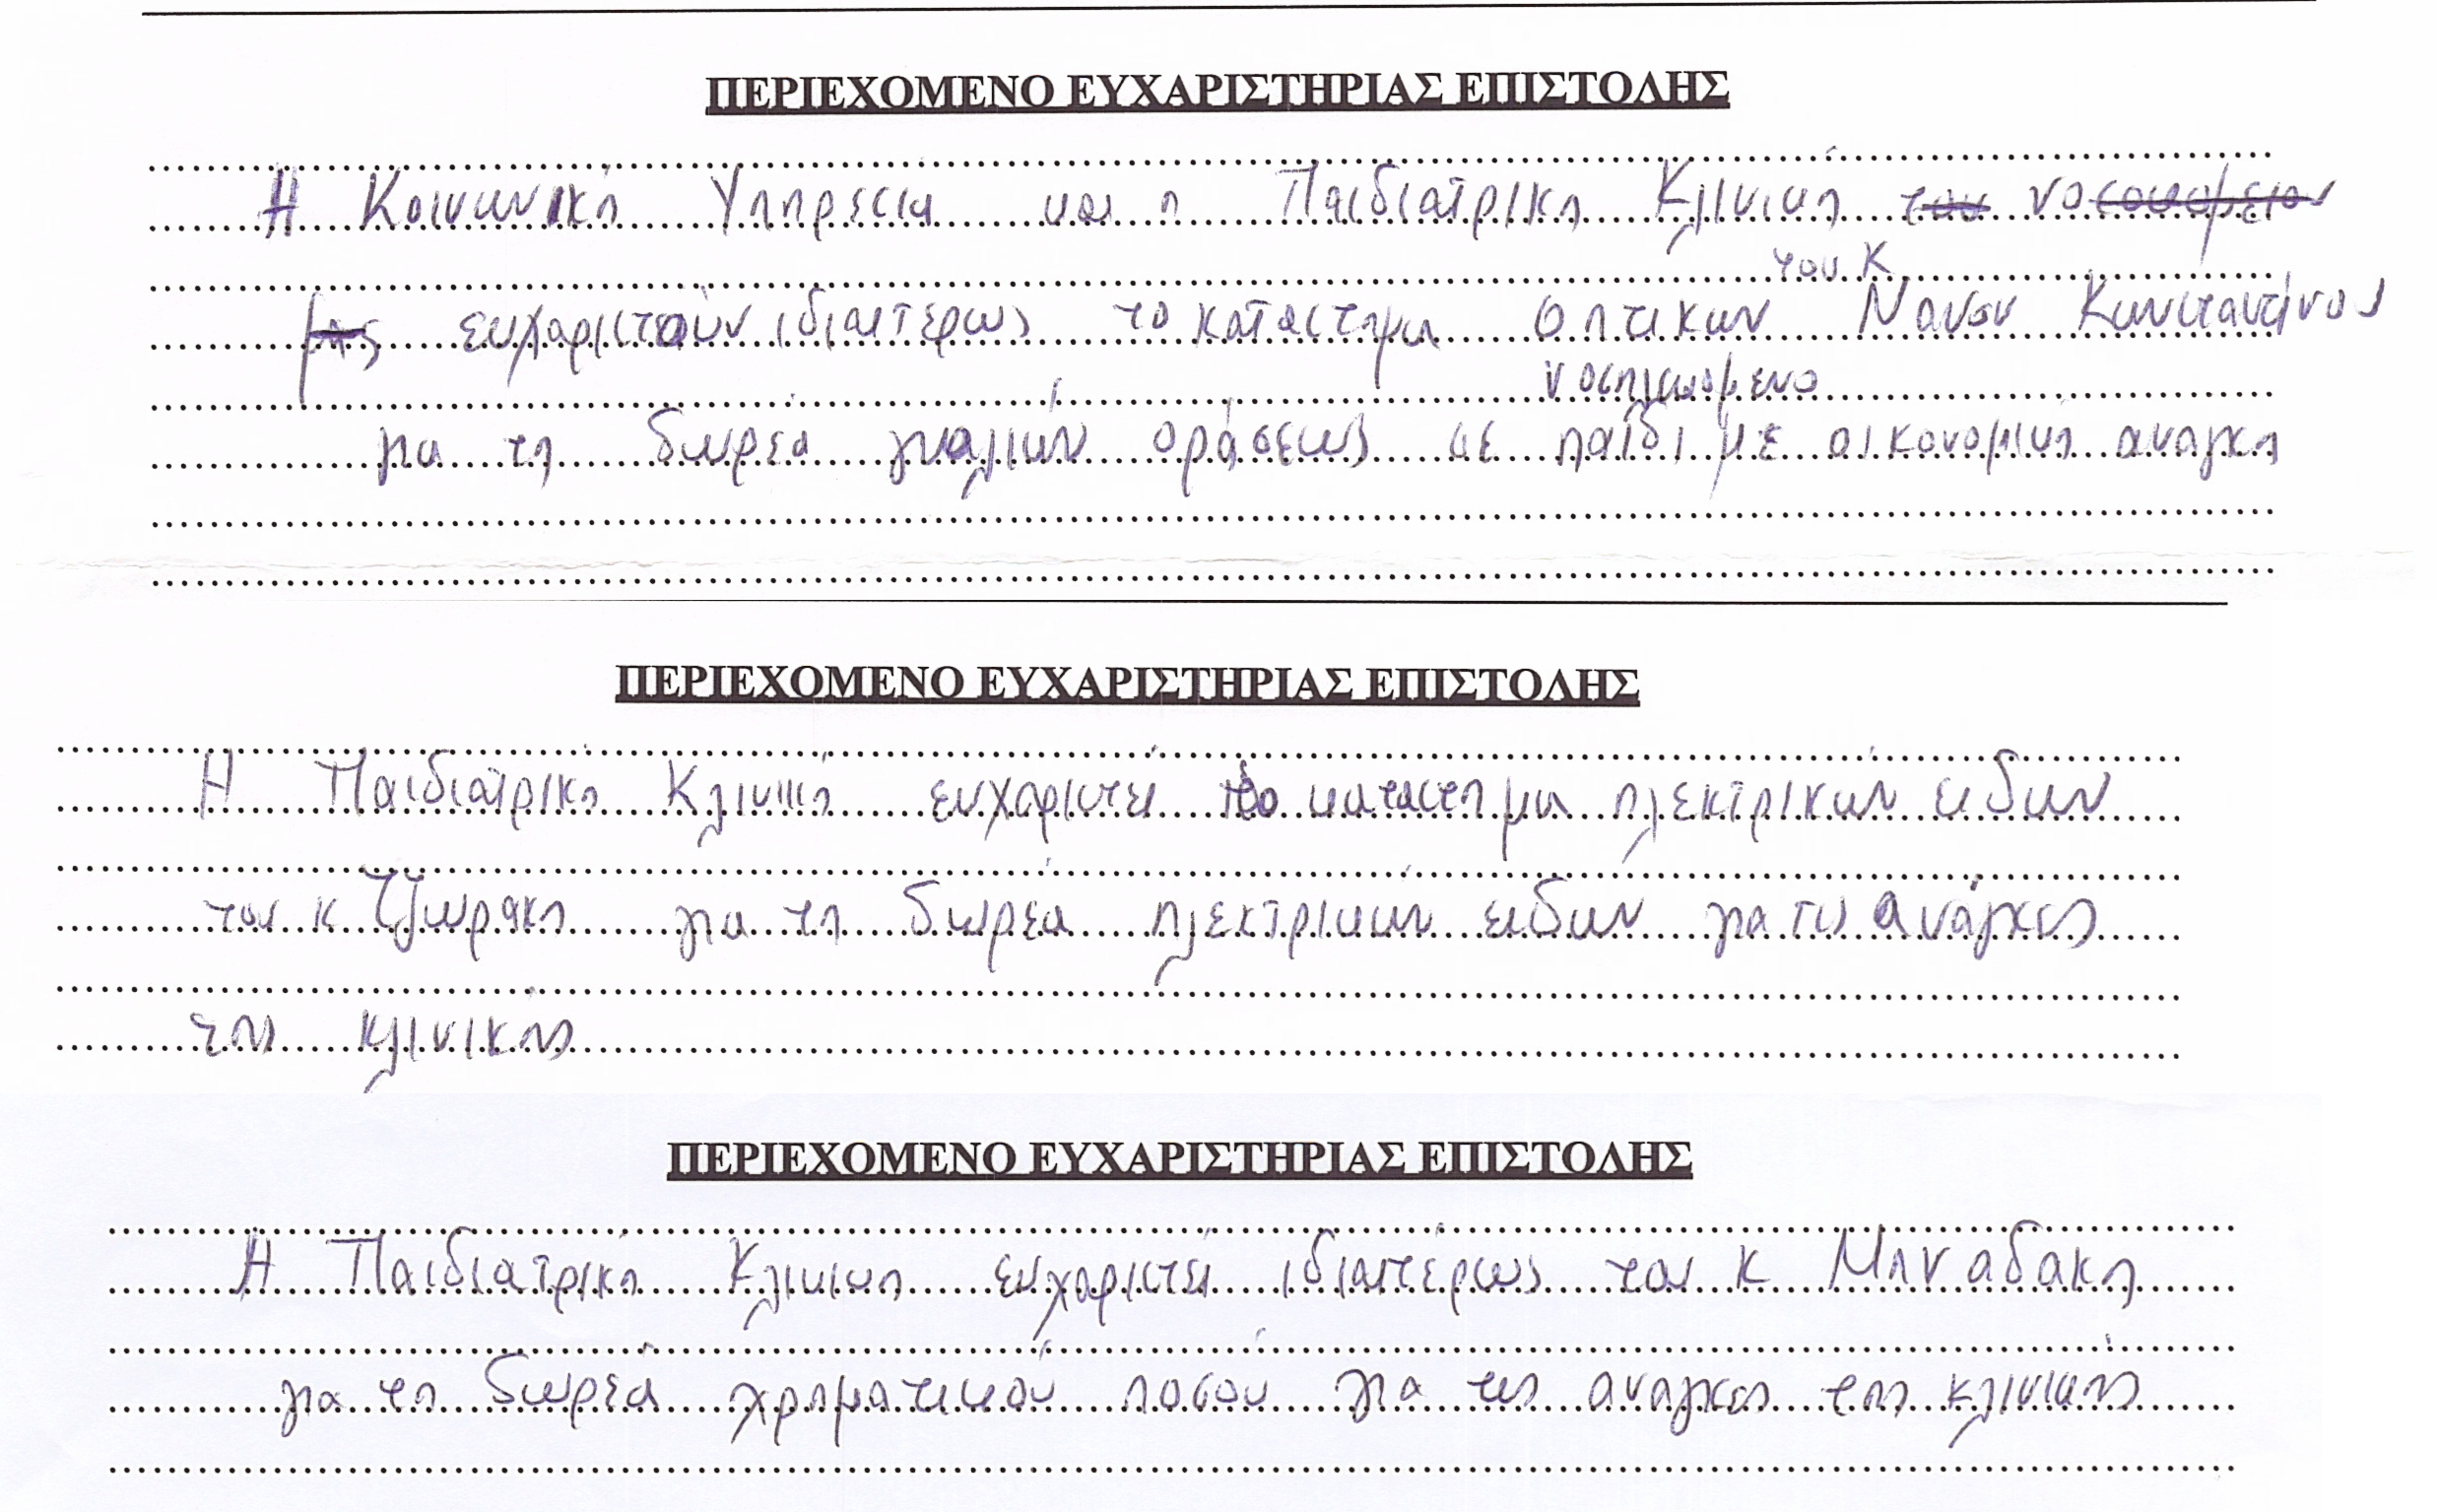 ΠΕΡΙΕΧΟΜΕΝΟ ΕΥΧΑΡΙΣΤΗΡΙΑΣ ΕΠΙΣΤΟΛΗΣ
Η Κοινωνική Υπηρεσια και η Παιδιατρικη Κλινικη του νοσοκομειου
του κ
μας ευχαριστούν ιδιαιτερως το καταστημα οπτικων Νανου Κωνσταντίνου
νοσηλευομενο
για τη δωρεά γυαλιών οράσεως σε παιδί με οικονομικη αναγκη
ΠΕΡΙΕΧΟΜΕΝΟ ΕΥΧΑΡΙΣΤΗΡΙΑΣ ΕΠΙΣΤΟΛΗΣ
Η Παιδιατρικη Κλινική ευχαριστεί το καταστημα ηλεκτρικών ειδων
του κ Τζωρακη για τη δωρεά ηλεκτρικών ειδων για τις ανάγκες
της κλινικης
ΠΕΡΙΕΧΟΜΕΝΟ ΕΥΧΑΡΙΣΤΗΡΙΑΣ ΕΠΙΣΤΟΛΗΣ
Η Παιδιατρική Κλινικη ευχαριστεί ιδιαιτέρως τον κ Μηναδακη
για τη δωρεά χρηματικού ποσού για τις αναγκες της κλινικής